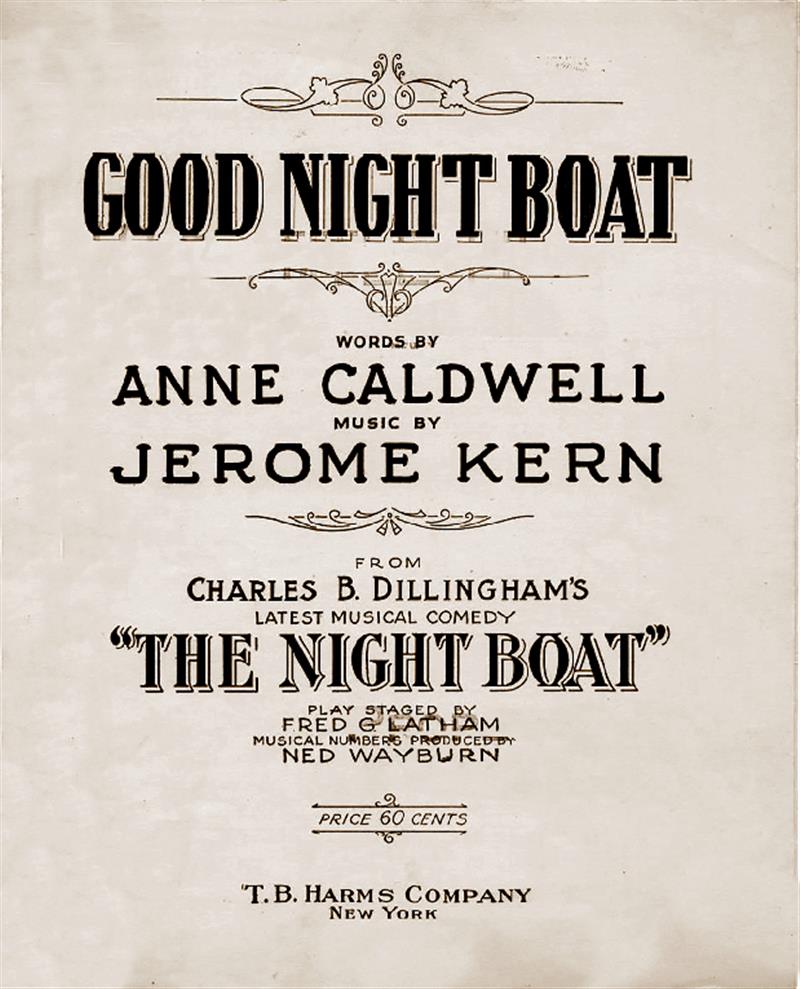 GOOD NIGHT BOAT
WORDS BY
ANNE CALDWELL
MUSIC BY
JEROME KERN
FROM
CHARLES B. DILLINGHAM'S
LATEST MUSICAL COMEDY
"THE NIGHT BOAT"
PLAY STAGED BY
FRED G. LATHAM
MUSICAL NUMBERS PRODUCED BY
NED WAYBURN
PRICE 60 CENTS
T. B. HARMS COMPANY
NEW YORK